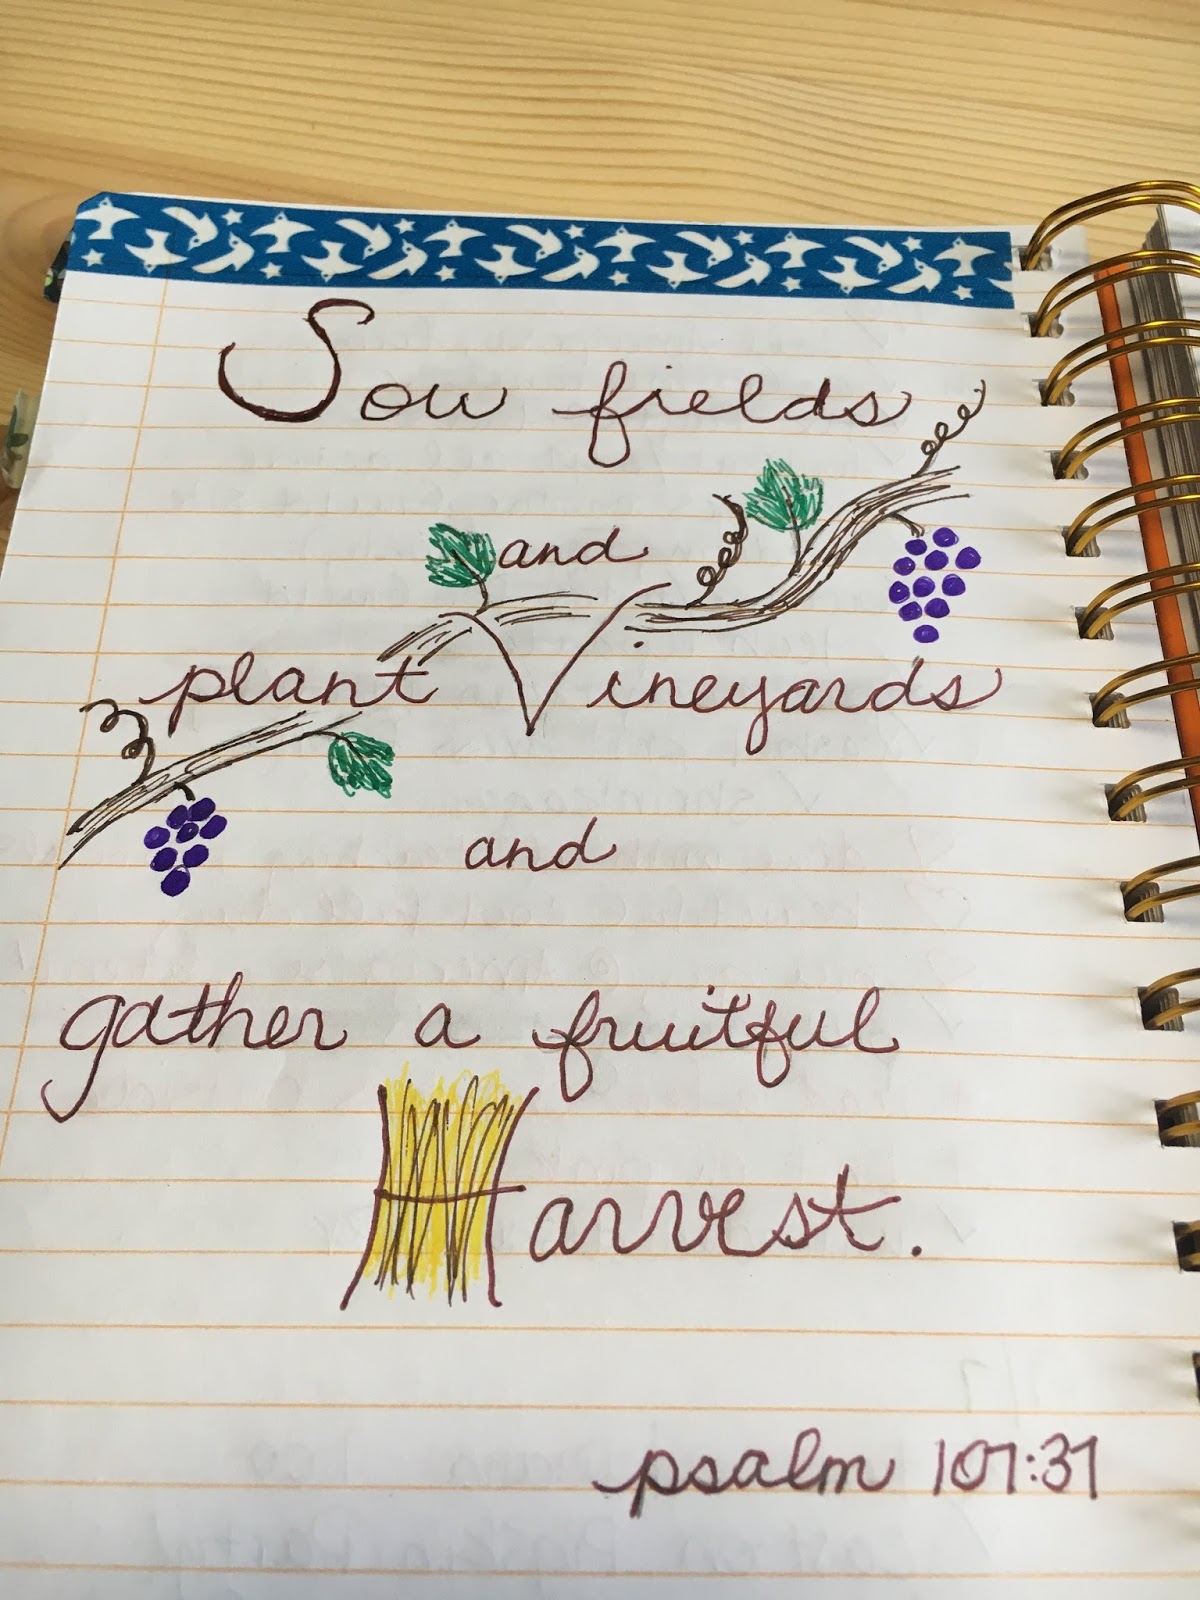 Sow fields
and
plant Vineyards
and
gather a fruitful
Harvest.
psalm 107:37